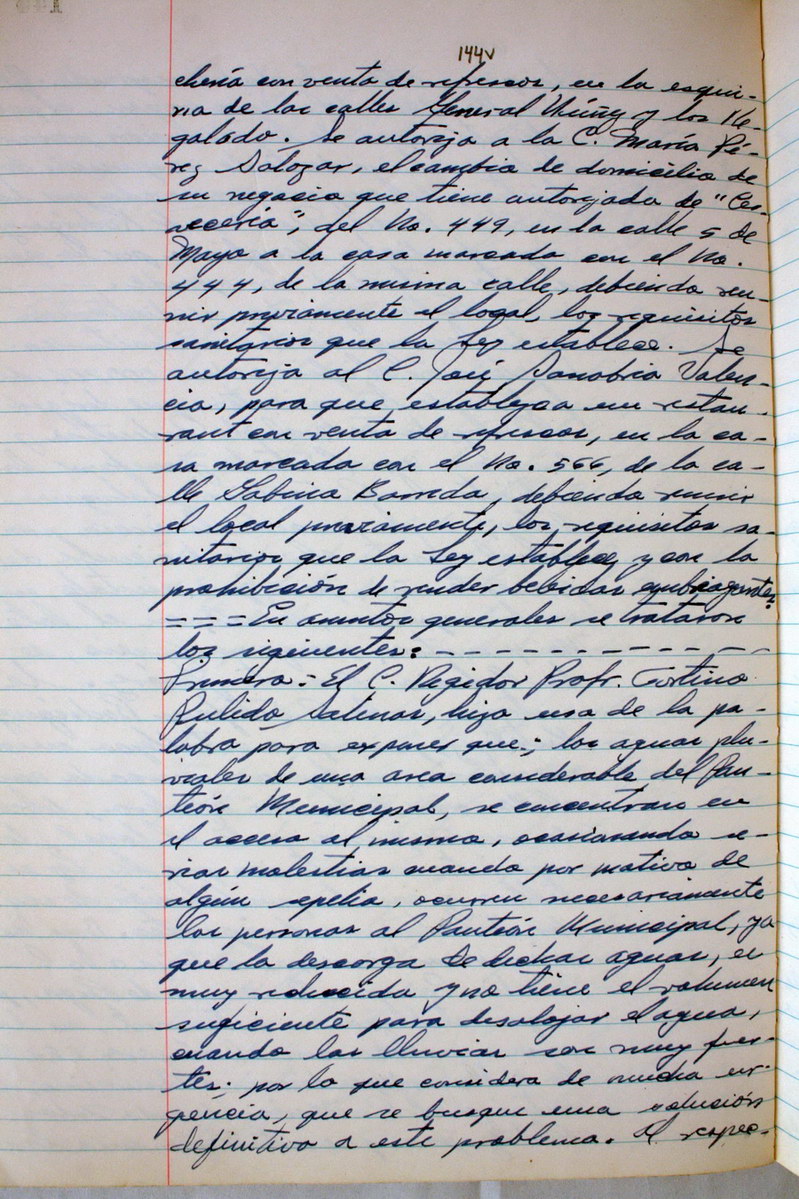 144v
chería con venta de refrescos, en la esqui-
na de las calles General Núñez y los Re-
galado. Se autoriza a la C. María Pé-
rez Salazar, el cambio de domicilio de
su negocio que tiene autorizado de "Cer-
vecería", del No. 449, en la calle 5 de
Mayo a la casa marcada con el No.
444, de la misma calle, debiendo reu-
nir previamente el local, los requisitos
sanitarios que la Ley establece. Se
autoriza al C. José Sanabria Valen-
cia, para que establezca un restau-
rant con venta de refrescos, en la ca-
sa marcada con el No. 566, de la ca-
lle Sabina Barreda, debiendo reunir
el local previamente, los requisitos sa-
nitarios que la Ley establece y con la
prohibición de vender bebidas embriagantes.
= = = En asuntos generales se trataron
los siguientes: - - - - - - - - - - - -
Primero.- El C. Regidor Profr.
Pulido Salinas, hizo uso de la pa-
labra para exponer que: las aguas plu-
viales de una area considerable del Pan-
teón Municipal, se encuentran en
el acceso al mismo, ocasionando se-
rias molestias cuando por motivo de
algún sepelio, ocurren necesariamente
las personas al Panteón Municipal, ya
que la descarga de dichas aguas, es
muy reducida y no tiene el volumen
suficiente para desalojar el agua,
cuando las lluvias son muy fuer-
tes; por lo que considera de mucha ur-
gencia, que se busque una solución
definitiva a este problema. Al respec-